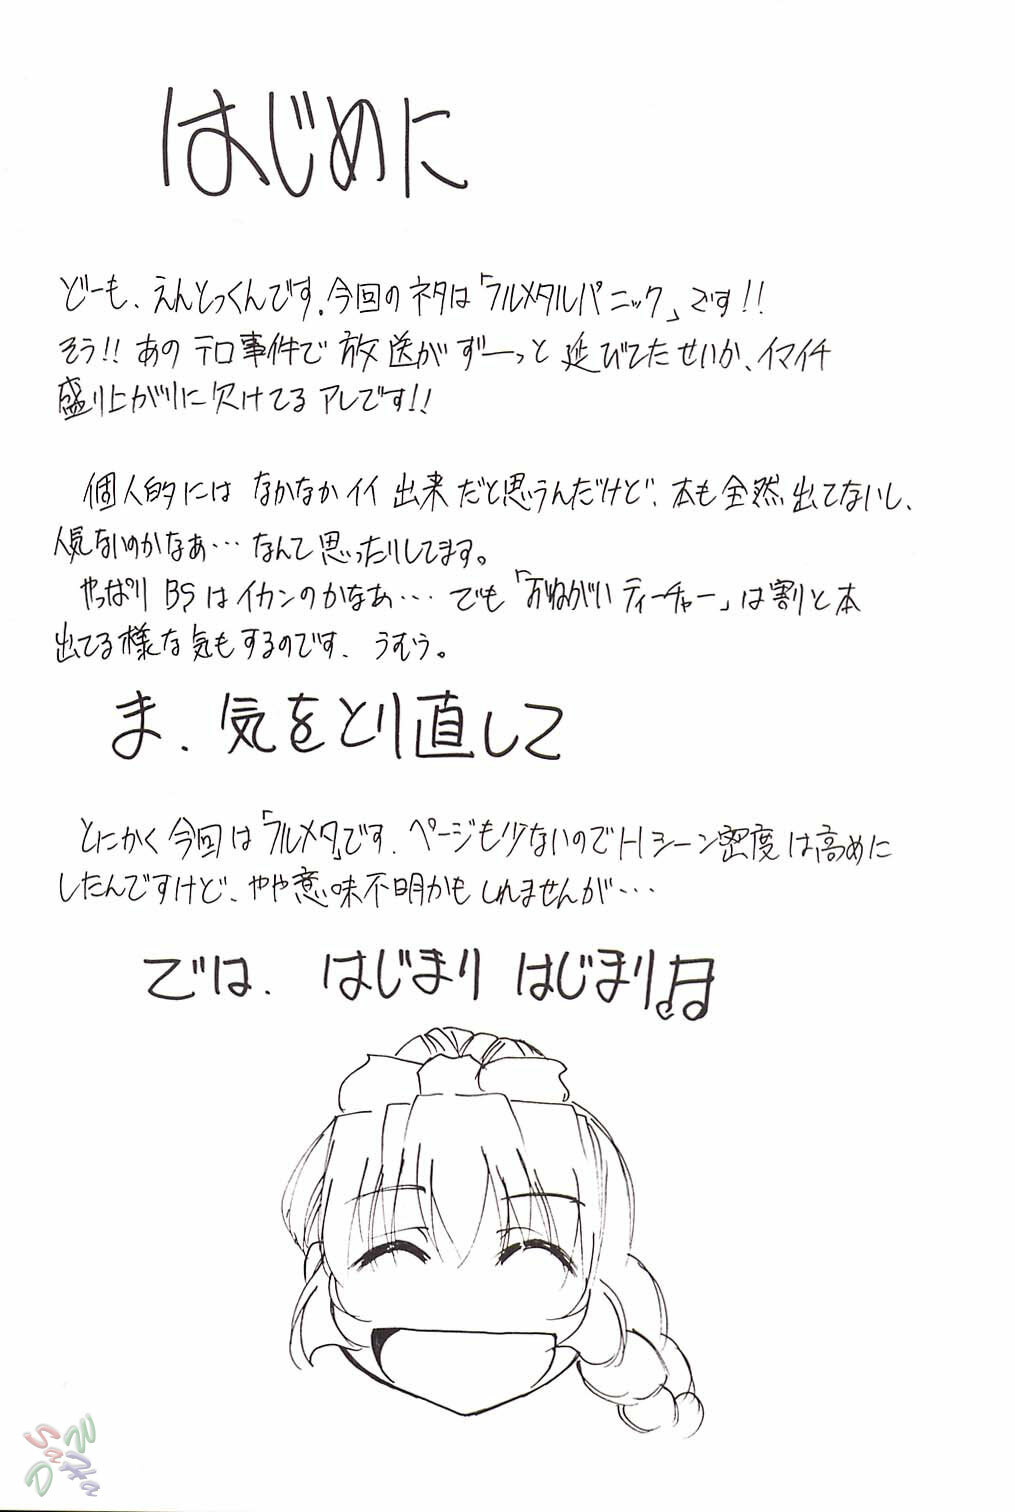 はじめに
どーも、えんとっくんです。今回のネタは「フルメタルパニック」です!!
そう!! あのテロ事件で放送がずーっと延びてたせいか、イマイチ
盛り上がりに欠けてるアレです!!
個人的にはなかなかイイ出来だと思うんだけど、本も全然出てないし、
人気ないのかなあ… なんて思ったりしてます。
やっぱりBSはイカンのかなあ… でも「おねがいティーチャー」は割と本
出てる様な気もするのです、うむう。
ま、気をとり直して
とにかく今回は「フルメタ」です、ページも少ないのでHシーン密度は高めに
したんですけど、やや意味不明かもしれませんが…
では、はじまりはじまり♫